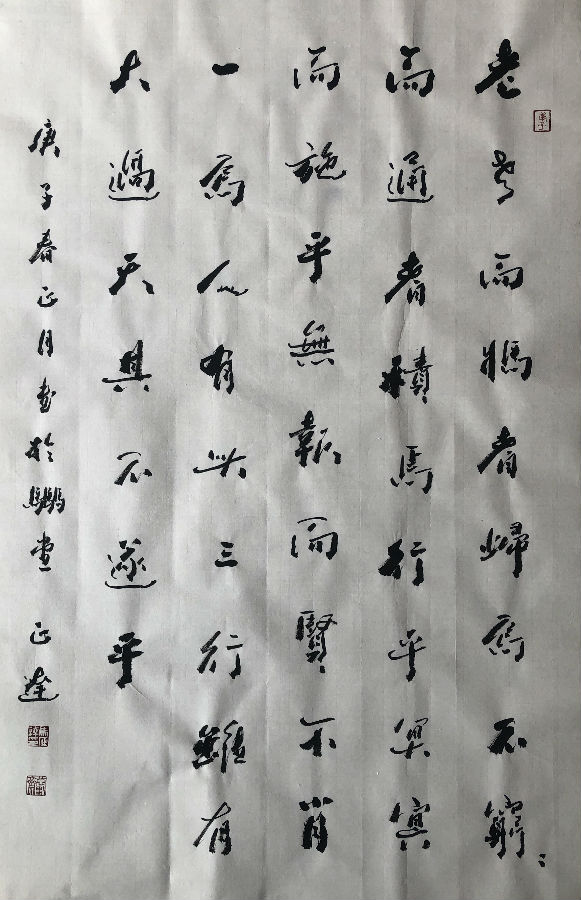 老老而壯者歸焉不窮〻
而通者積焉行乎冥冥
而施乎無報而賢不肖
一焉人有此三行雖有
大過天其不遂乎
庚子春正月書於堂 正達